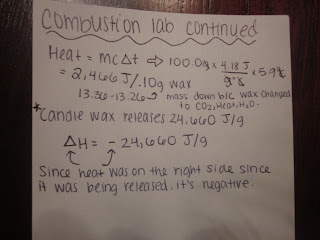 Combustion lab continued
Heat = mcΔt ⇒ 100.0g × 4.18 J/g°c × 5.9°c
= 2,466 J/.10g wax
13.36-13.26 mass down b/c wax changed
to CO₂, Heat, H₂O.
*Candle wax releases 24,660 J/g
ΔH = - 24,660 J/g
Since heat was on the right side since
it was being released, it's negative.